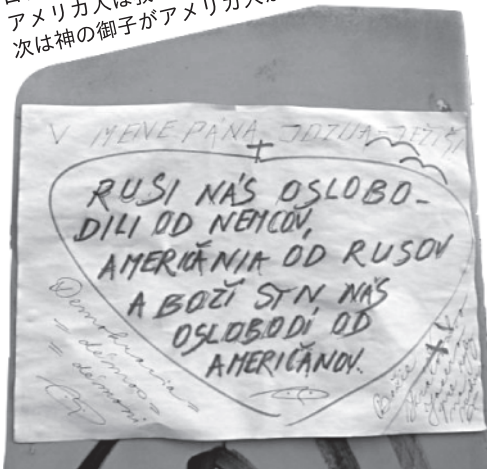 アメリカ人は
次は神の御子がアメリカ人
V MENE PÁNA
RUSI NÁS OSLOBO-
DILI OD NEMCOV,
AMERIČANIA OD RUSOV
A BOŽÍ SYN NÁS
OSLOBODÍ OD
AMERIČANOV.
Demokracia =
= demos =
= demoni